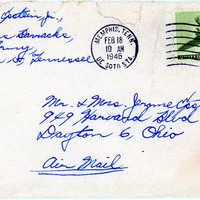 Epstein Jr.,
Barracks
Army
Tennessee
MEMPHIS, TENN.
FEB 18
10 AM
1946
DE SOTO STA.
Mr. & Mrs. Jerome
949 Harvard Blvd
Dayton 6, Ohio
Air Mail